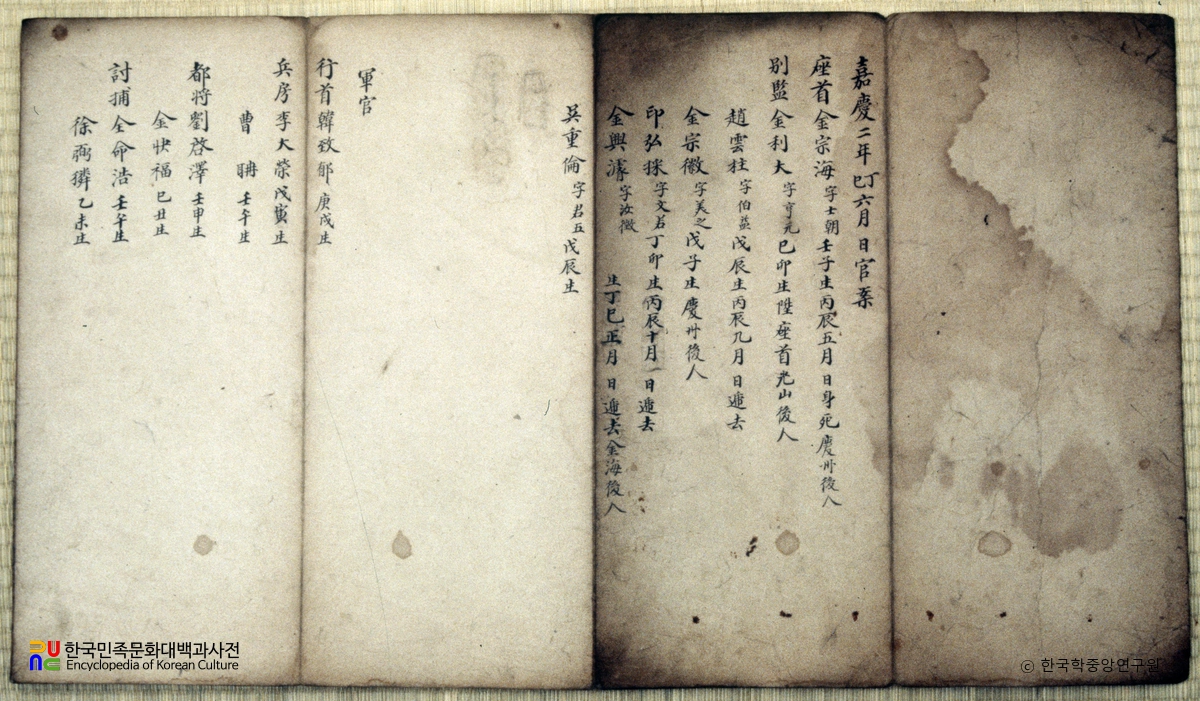 嘉慶二年丁巳六月 日官案
座首金宗海字士朝壬子生丙辰五月 日身死慶州後人
別監金利大字亨元己卯生陞座首光山後人
趙雲柱字伯益戊辰生丙辰九月 日遞去
金宗徽字美之戊子生慶州後人
印弘採字文若丁卯生丙辰十月 日遞去
金興濬字汝徵 生丁巳正月 日遞去金海後人
吳重倫字君五戊辰生
軍官
行首韓致郁庚戌生
兵房李大榮戊寅生
曹 壬午生
都將劉啓澤壬申生
金快福己丑生
討捕金命浩壬午生
徐 乙未生
한국민족문화대백과사전
Encyclopedia of Korean Culture
© 한국학중앙연구원